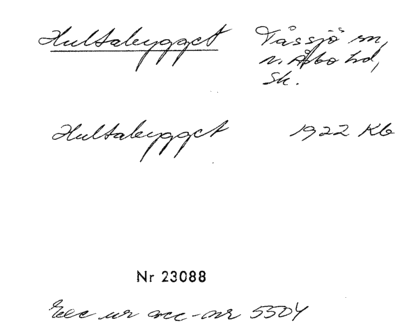 Hultabygget Tåssjö sn,
n. Åsbo hd,
Sk.
Hultabygget 1922 Kb
Nr 23088
Exc ur acc-nr 5504